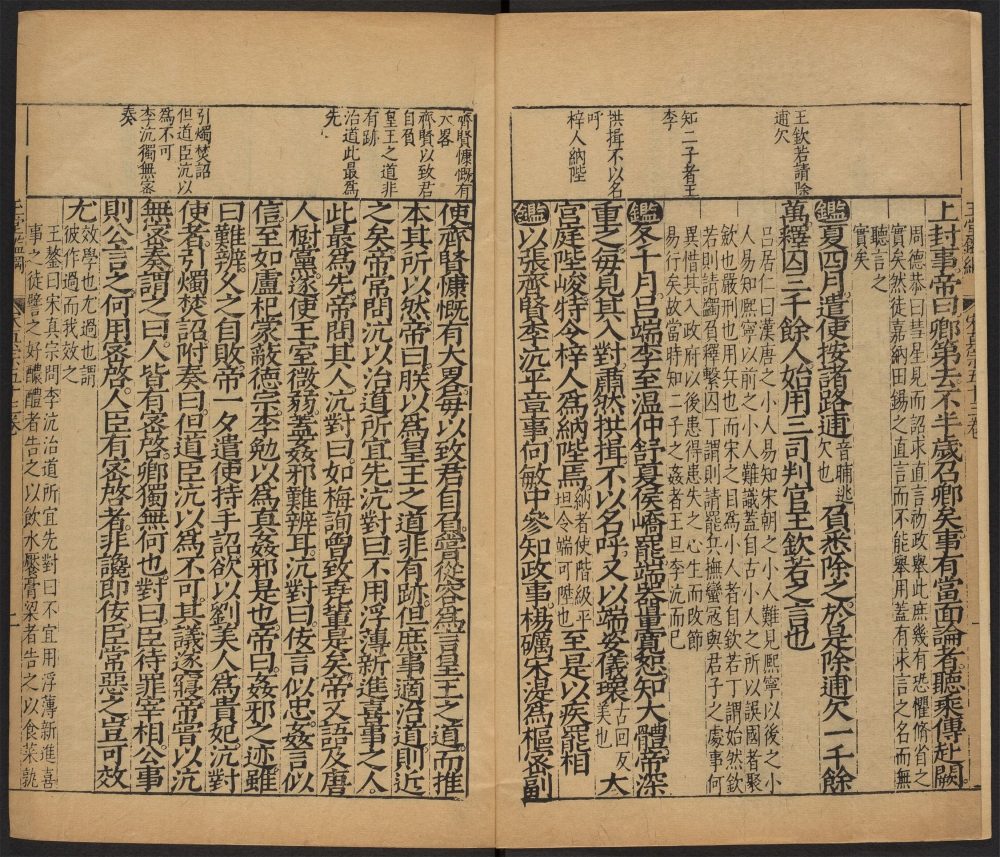 王欽若請除
逋欠
知二子者王
李
拱揖不以名
呼
梓人納陛
上封事帝曰卿第去不半歲召卿矣事有當面論者聽乘傳赴闕
周德恭曰彗星見而詔求直言初政舉此庶幾有恐懼脩省之
實矣然徒嘉納田錫之直言而不能舉用蓋有求言之名而無
聽言之
實矣
鑑夏四月遣使按諸路逋音晡逃欠也負悉除之於是除逋欠一千餘
萬釋囚三千餘人始用三司判官王欽若之言也
呂居仁曰漢唐之小人易知宋朝之小人難見熙寧以後之小
人易知熙寧以前之小人難識蓋自古小人之所以誤國者聚
歛也嚴刑也用兵也而宋之目為小人者自欽若丁謂始然欽
若則請蠲負釋繫囚丁謂則請罷兵撫蠻冦與君子之處事何
異惜其入政府以後患得患失之心生而改節
易行矣故當時知二子之姦者王旦李沆而已
鑑冬十月呂端李至温仲舒夏侯嶠罷端器量寬恕知大體帝深
重之每見其入對肅然拱揖不以名呼又以端姿儀瓌古回反美也大
宫庭陛峻特令梓人為納陛焉納者使階級平坦令端可陛也至是以疾罷相
鑑以張齊賢李沆平章事何敏中參知政事楊礪宋湜為樞密副
齊賢慷慨有
大畧
齊賢以致君
自負
皇王之道非
有跡
治道此最為
先
引燭焚詔
但道臣沆以
為不可
李沆獨無密
奏
使齊賢慷慨有大畧每以致君自負嘗從容為言皇王之道而推
本其所以然帝曰朕以為皇王之道非有跡但庶事適治道則近
之矣帝常問沆以治道所宜先沆對曰不用浮薄新進喜事之人
此最為先帝問其人沆對曰如梅詢曾致堯輩是矣帝又語及唐
人樹黨遂使王室微弱蓋姦邪難辨耳沆對曰佞言似忠姦言似
信至如盧杞蒙蔽德宗李勉以為真姦邪是也帝曰姦邪之迹雖
曰難辨久之自敗帝一夕遣使持手詔欲以劉美人為貴妃沆對
使者引燭焚詔附奏曰但道臣沆以為不可其議遂寢帝嘗以沆
無密奏謂之曰人皆有密啓卿獨無何也對曰臣待罪宰相公事
則公言之何用密啓人臣有密啓者非讒即佞臣常惡之豈可效
尤效學也尤過也謂彼作過而我效之
王鏊曰宋真宗問李沆治道所宜先對曰不宜用浮薄新進喜
事之徒譬之好醲醴者告之以飲水饜膏粱者告之以食菜孰